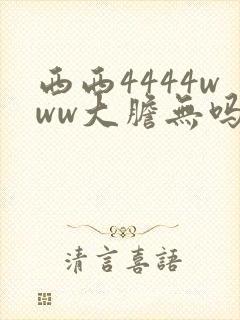 西西4444w
ww大膽無吗
清言喜語